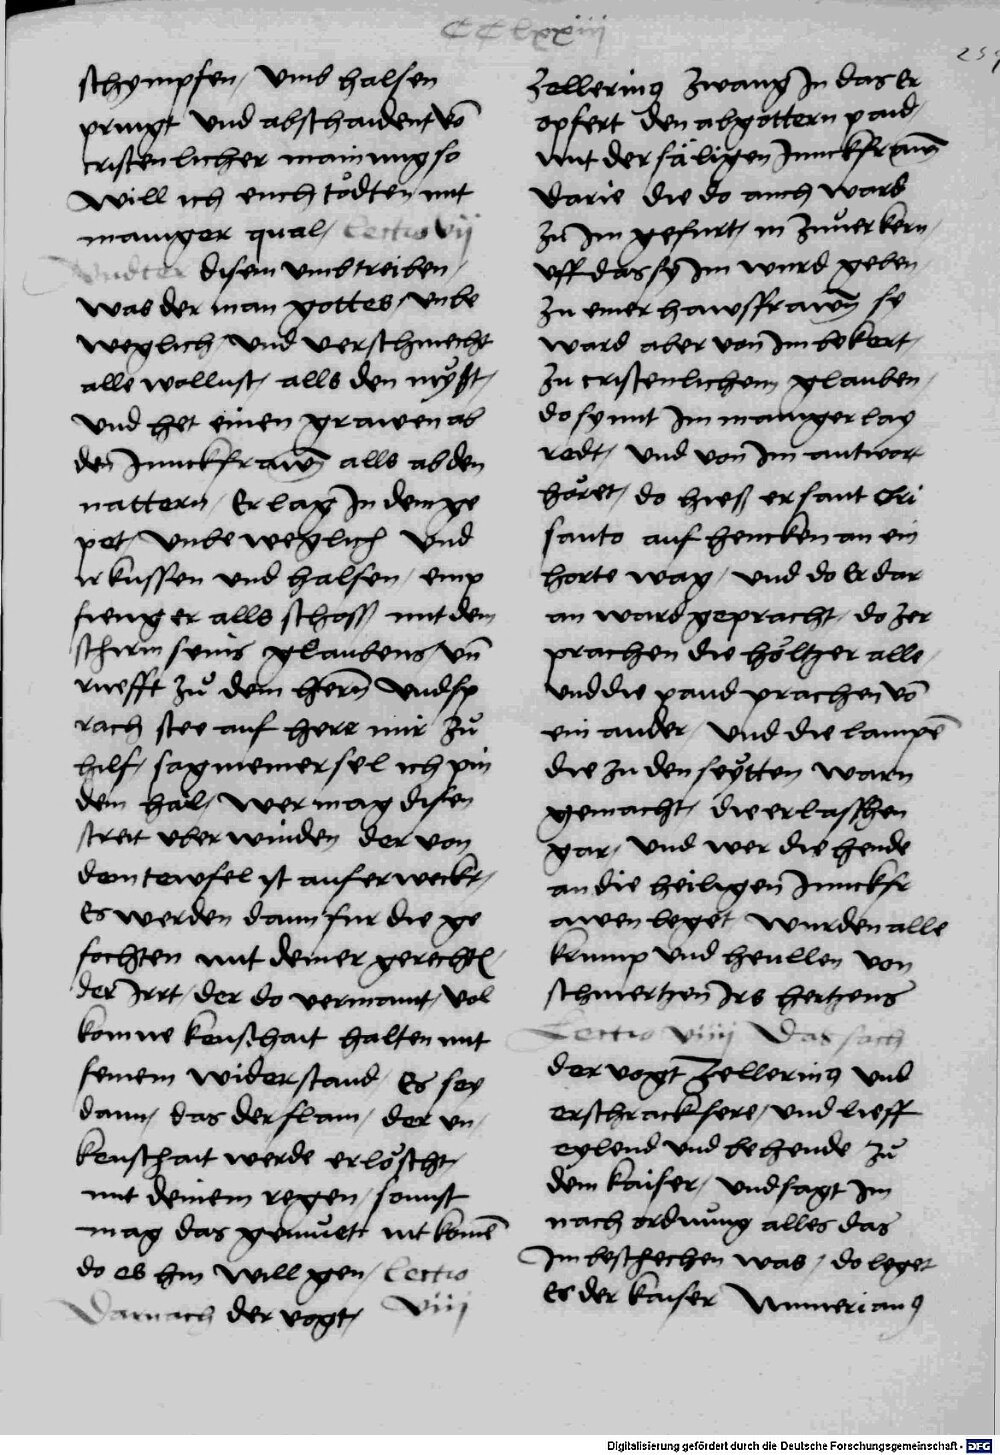 CClxxiii
schympfen, vmb halsen
pringt vnd abschaident vō
cristenlicher mainung so
will ich euch tödten mit
maniger qual, Lectio vij
Vndter disem vmbtreiben,
was der man gottes, vnbe
weglich, vnd verschmecht
alle wollust, alls den myst,
vnd het einen grawen ab
den Junckfrawn̄ alls ab den
nattern, Er lag Jn dem ge
pet, vnbeweglich vnd
ir kussen vnd halsen, emp
fieng er alls schoss mit dem
schirm seins glaubens, vn̄
rwefft zů dem hern̄ vnd sp
rach stee auf herr mir zů
hilf, sag meiner sel ich pin
dein hail, wer mag disen
streit vberwinden der von
dem tewfel ist auferweckt,
Es werden dann fur die ge
fochten mit deiner gerechtē,
der Jrrt, der do vermaint, vol
komne keuschait halten mit
seinem widerstand, Es sey
dann, das der flam, der vn,
keuschait werde erlöscht,
mit deinem regen, sonnst
mag das gemüet nit komē
do es hin will gen, Lectio
Darnach der vogt, viij
Zelleriny zwang Jn das Er
opfert den abgöttern paid,
mit der säligen Junckfrawn̄
Darie die do auch ward
zů Jm gefurt, in zůuerkern,
vff das sy Jm wurd geben,
zu einer hawsfrawn̄ sy
ward aber von Jm bekert,
zu cristenlichem glauben,
do sy mit Jm maniger lay
redt, vnd von Jm antwort
höret, do hieß er sant Cri
santo auf hencken an ein
horte wag, vnd do Er dar
an ward gepracht, do zer
prachen die höltzer alle,
vnd die pand prachen vō
ein ander, vnd die lampē
die zu den seytten warn
gemacht, die erlasschen
gar, vnd wer die hende
an die heiligen Junckfr
awen leget wurden alle
krump vnd heullen von
schmertzen Jrs hertzens
Lectio viiij Das sach
der vogt Zelleriny vnd
erschrack sere, vnd lieff
eylend vnd behende zů
dem kaiser, vnd sagt Jm
nach ordnůng alles das
Jm beschechen was, do leget
Es der kaiser Numeriany
Digitalisierung gefördert durch die Deutsche Forschungsgemeinschaft - DFG